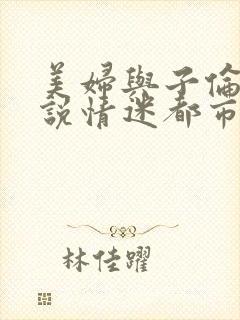 美婦與子倫
說情迷都市
林佳躍